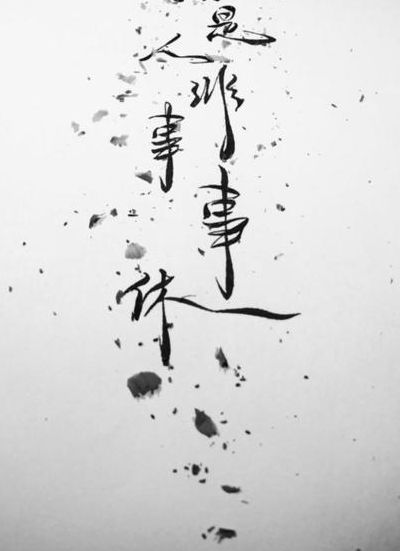 是人非事事休